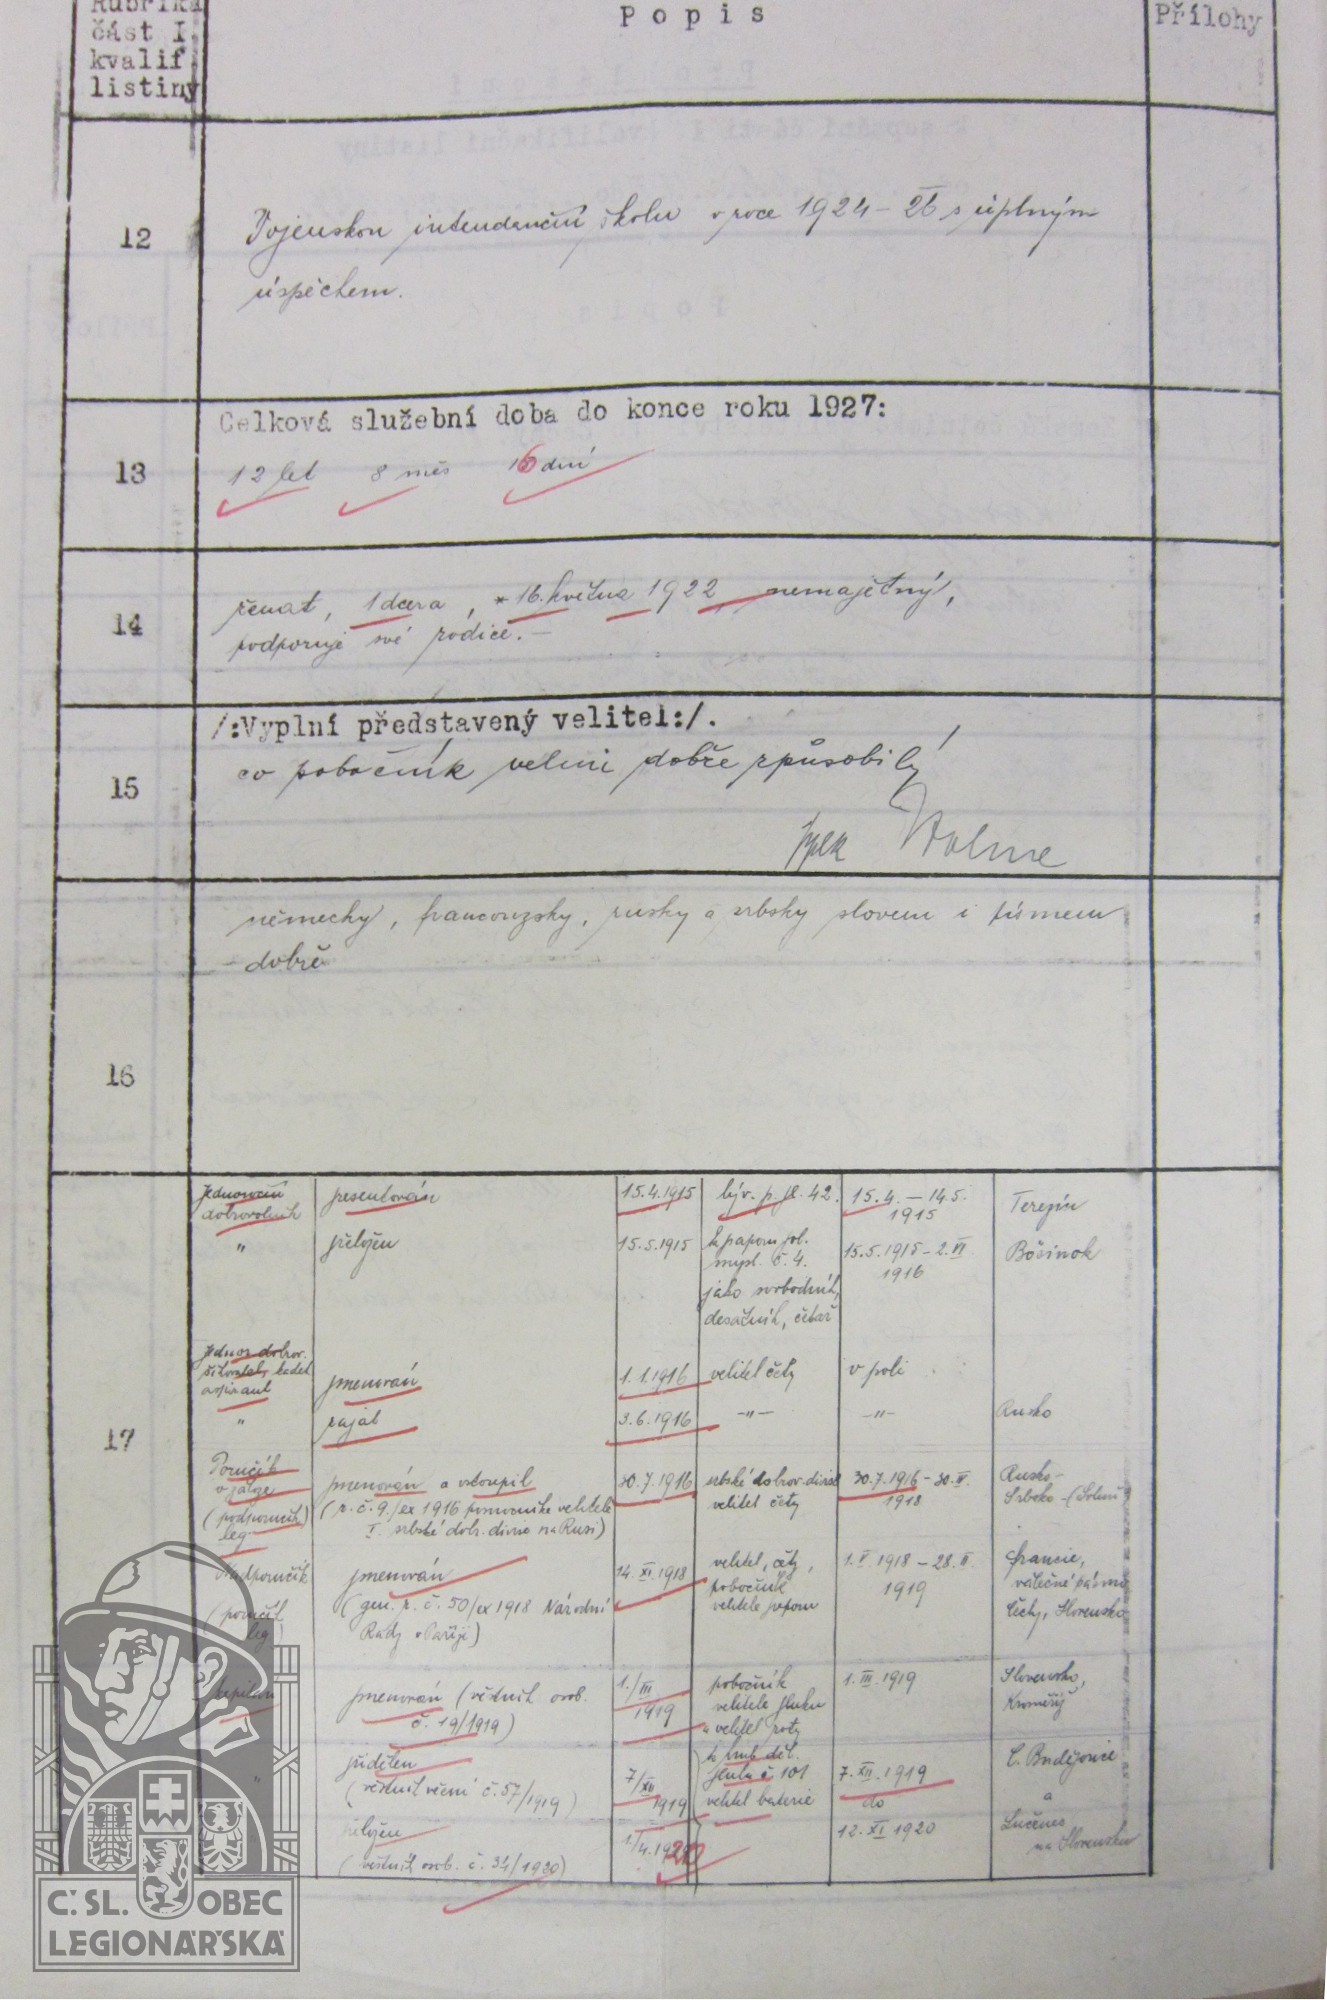 Rubrika
část I
kvalif.
listiny
Popis
Přílohy
12
Vojenskou intendanční školu v roce 1924 – 26 s úplným
úspěchem.
13
Celková služební doba do konce roku 1927:
12 let 8 měs 16 dní
14
ženat, 1 dcera, * 16. května 1922, nemajetný,
podporuje své rodiče. –
15
/:Vyplní představený velitel:/.
co pobočník velmi dobře způsobilý
16
německy, francouzsky, rusky a srbsky slovem i písmem
– dobře
17
Jednoroční
dobrovolník
presentován
15.4.1915
býv. p. pl. 42.
15.4. – 14.5.
1915
Terezín
"
přeložen
15.5.1915
k praporu pol.
mysl. č. 4.
jako svobodník,
desátník, četař
15.5.1915 – 2.VI
1916
jednor. dobrov.
kadet
aspirant
jmenován
1.1.1916
velitel čety
v poli
"
zajat
3.6.1916
–"–
–"–
Rusko
Poručík
v záloze
(podporučík)
leg.
jmenován a vstoupil
(r. č. 9./ex 1916 pomocníka velitele
I. srbské dobr. divise na Rusi)
30.7.1916
srbské dobrov. divise
velitel čety
30.7.1916 – 30.
1918
Rusko –
Srbsko – (Soluň
Nadporučík
(poručík
leg.)
jmenován
(gen. r. č. 50/ex 1918 Národní
Rady v Paříži)
14.XI.1918
velitel čety,
pobočník
velitele praporu
1.V.1918 – 28.II.
1919
Francie,
válečné pásmo
Čechy, Slovensko
kapitán
jmenován (věstník osob.
č. 19/1919)
1./III.
1919
pobočník
velitele pluku
a velitel roty
1.III.1919
Slovensko,
Kroměříž
"
přidělen
(věstník věcný č. 57/1919)
7/XII
1919
k hrub. děl.
pluku č 101
velitel baterie
7.XII.1919
do
12.XI 1920
Č. Budějovice
a
Lučenec
na Slovensku
přeložen
(věstník osob. č. 34/1920)
1./4.1920
Č. SL. OBEC
LEGIONÁŘSKÁ